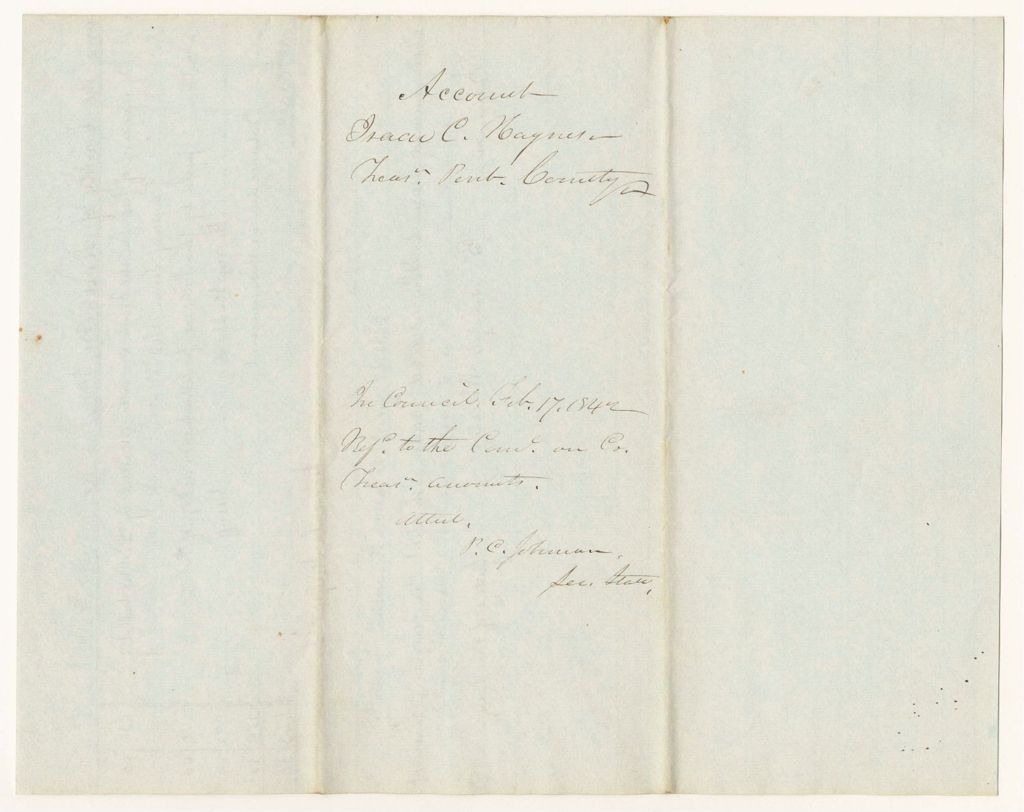 Account
Isaac C. Haynes
Treasr. Penb. County
In Council, Feb. 17, 1842
Refd. to the Comd. on Co.
Treasr. accounts.
Attest,
P. C. Johnson,
Sec. State,